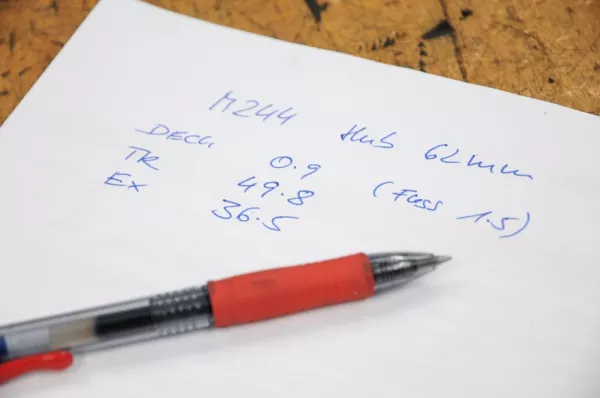 M244 Hub 62mm
DECK 0.9
TR 49.8 (Fuss 1.5)
Ex 36.5